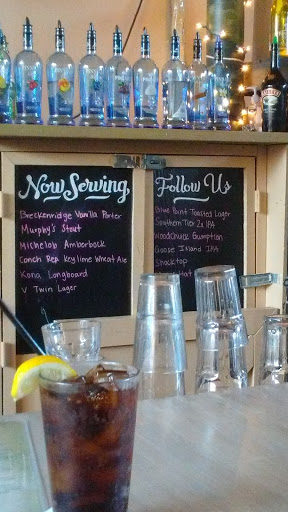 Now Serving
Breckenridge Vanilla Porter
Murphy's Stout
Michelob Amberbock
Conch Rep Key Lime Wheat Ale
Kona Longboard
V Twin Lager
Follow Us
Blue Point Toasted Lager
Southern Tier 2x IPA
Woodchuck Gumption
Goose Island IPA
Shocktop
Hat